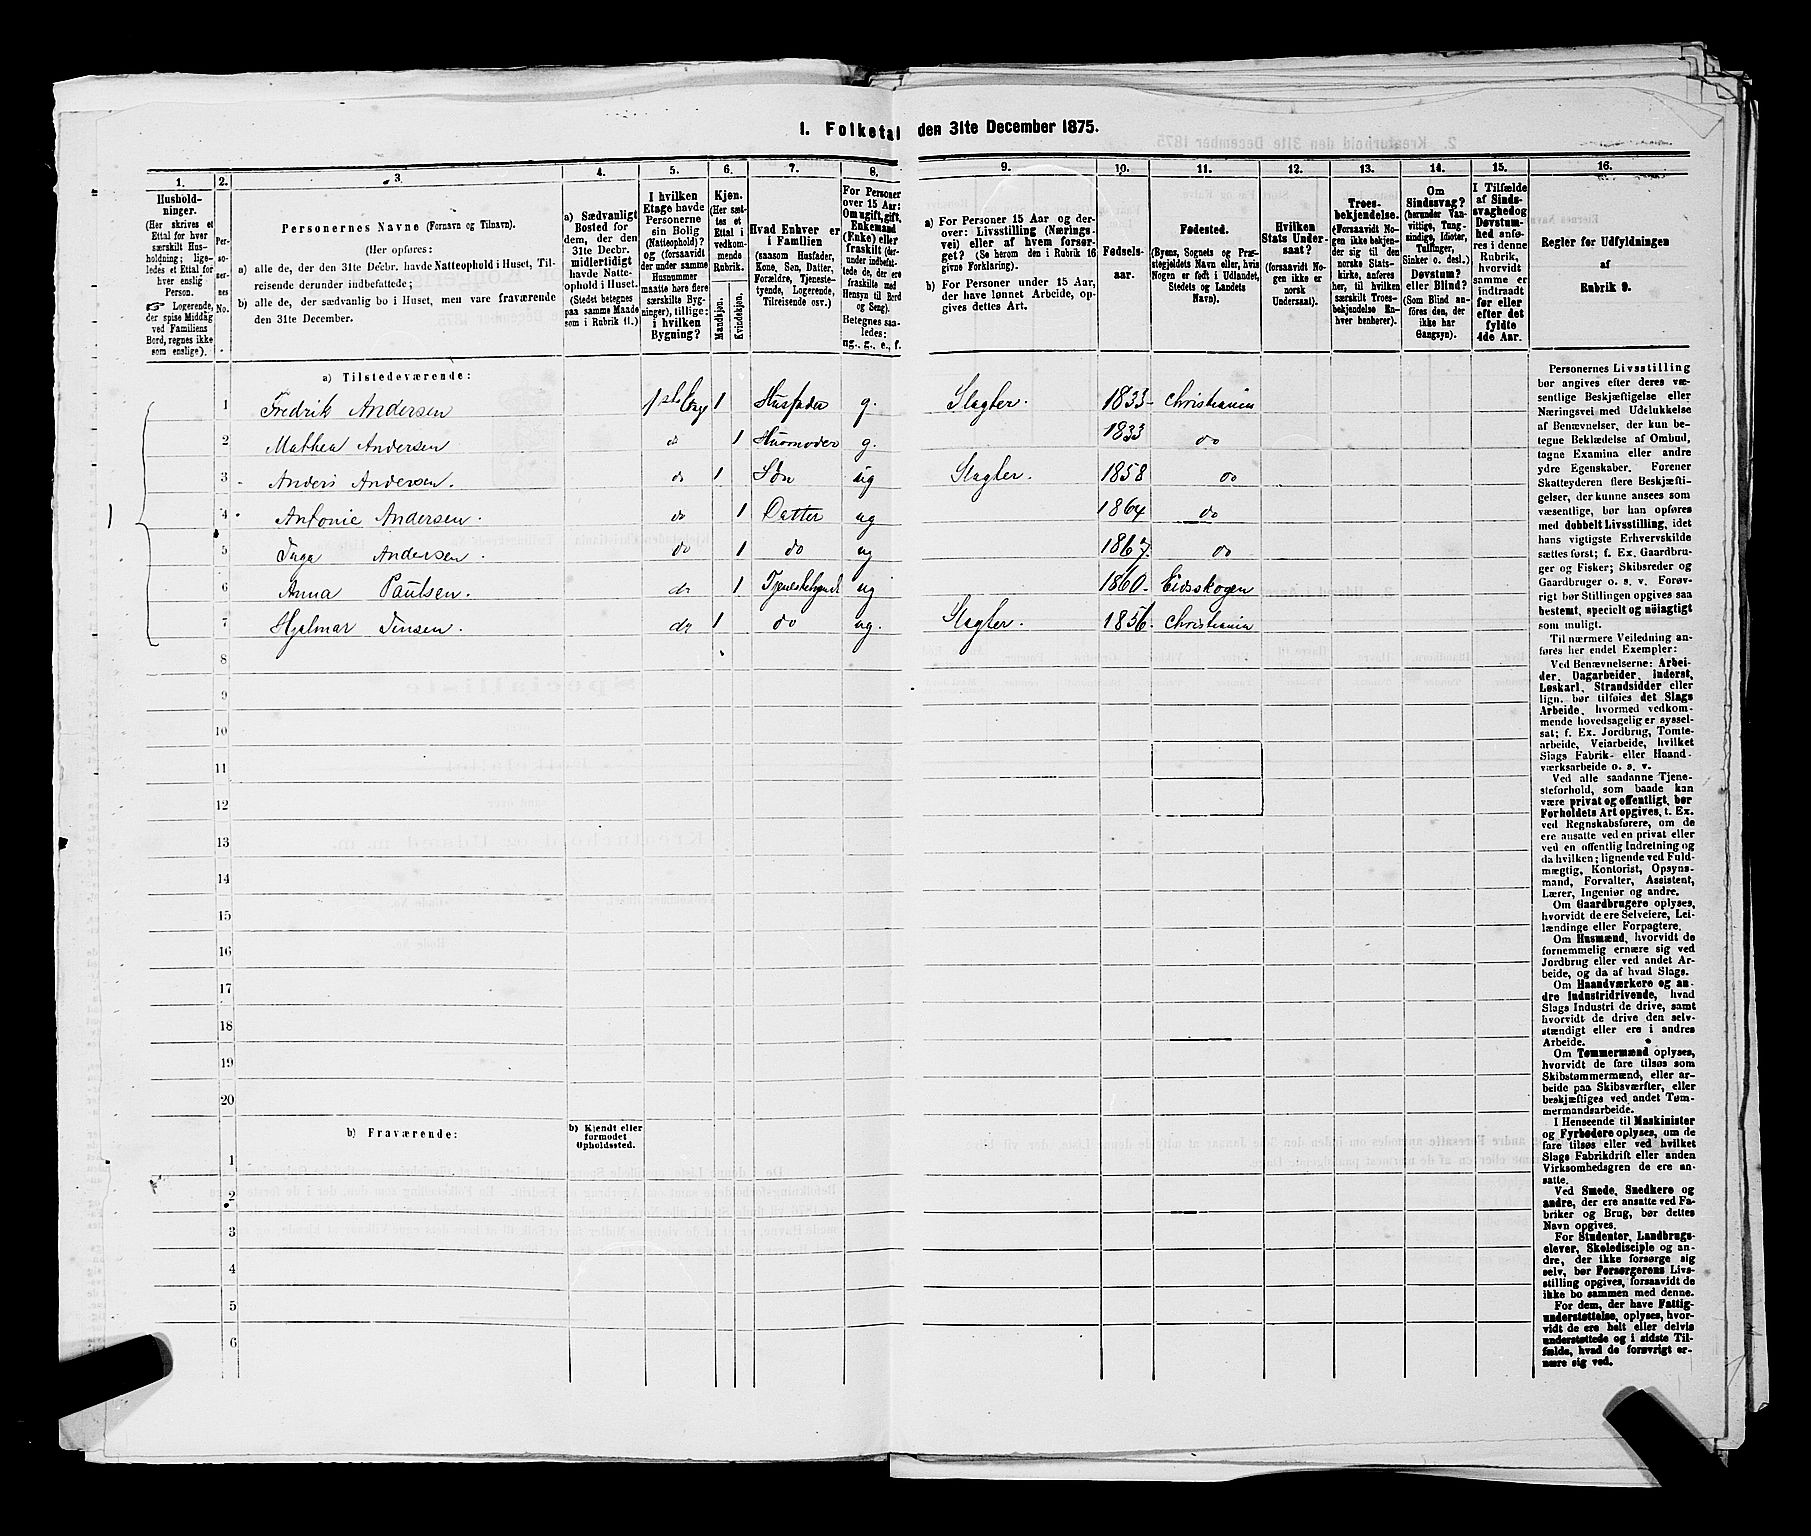 1. Folketal den 31te December 1875.
1. 2. 3. 4. 5. 6. 7. 8. 9. 10. 11. 12. 13. 14. 15. 16.
Husholdninger.
(Her skrives et
Ettal for hver
særskilt Husholdning;
ligeledes et Ettal for
hver enslig
Person.
Logerende,
der spise Middag
ved Familiens
Bord, regnes ikke
som enslige).
Personernes No.
Personernes Navne (Fornavn og Tilnavn).
(Her opføres:
a) alle de, der den 31te Decbr. havde Natteophold i Huset, Tilreisende
derunder indbefattede;
b) alle de, der sædvanlig bo i Huset, men vare fraværende
den 31te December.
a) Sædvanligt
Bosted for
dem, der den
31te Decbr.
midlertidigt
havde Natteophold
i Huset.
(Stedet betegnes
paa samme Maade
som i Rubrik 11.)
I hvilken
Etage havde
Personerne
sin Bolig
(Natteophold)?
og (forsaavidt
der under samme
Husnummer
maatte høre flere
særskilte Bygninger),
tillige:
i hvilken
Bygning?
Kjøn.
(Her sættes
et
Ettal i
vedkommende
Rubrik.
Mandkjøn.
Kvindekjøn.
Hvad Enhver er
i Familien
(saasom Husfader,
Kone, Søn, Datter,
Forældre, Tjenestetyende,
Logerende,
Tilreisende osv.)
For Personer
over 15 Aar:
Om ugift, gift,
Enkemand
(Enke) eller
fraskilt (derunder
indbefattede
de, der ere
fraskilte med
Hensyn til Bord
og Seng).
Betegnes saaledes:
ug., g., e., f.
a) For Personer 15 Aar og derover:
Livsstilling (Næringsvei)
eller af hvem forsørget?
(Se herom den i Rubrik 16
givne Forklaring).
b) For Personer under 15 Aar,
der have lønnet Arbeide, opgives
dettes Art.
Fødselsaar.
Fødested.
(Byens, Sognets og Præstegjeldets
Navn eller, hvis
Nogen er født i Udlandet,
Stedets og Landets
Navn).
Hvilken
Stats Undersaat?
(forsaavidt Nogen
ikke er
norsk
Undersaat).
Troesbekjendelse.
(Forsaavidt Nogen
ikke bekjender
sig til den
norske Statskirke,
anføres
her, til hvilken
særskilt Troesbekjendelse
Enhver
henhører).
Om
Sindssvag?
(herunder Vanvittige,
Tungsindige,
Idioter,
Tullinger,
Sinker o. desl.)
Døvstum?
eller Blind?
(Som Blind anføres
den, der
ikke har
Gangsyn).
I Tilfælde
af Sindssvaghed
og
Døvstumhed
anføres
i denne
Rubrik,
hvorvidt
samme er
indtraadt
før eller
efter det
fyldte
4de Aar.
Regler for Udfyldningen
af
Rubrik 9.
a) Tilstedeværende:
1
1 Fredrik Andersen 1ste Etage 1 Husfader g. Slagter. 1833 Christiania
2 Mathea Andersen do 1 Husmoder g. 1833 do
3 Anders Andersen. do 1 Søn ug Slagter. 1858 do
4 Antonie Andersen. do 1 Datter ug 1864 do
5 Inga Andersen. do 1 do ug 1867. do
6 Anna Paulsen. do 1 Tjenestetyende ug 1860. Eidsskogen
7 Hjalmar Jensen. do 1 do ug. Slagter. 1856. Christiania
8
9
10
11
12
13
14
15
16
17
18
19
20
b) Fraværende:
b) Kjendt eller
formodet
Opholdssted.
1
2
3
4
5
6
Personernes Livsstilling
bør angives efter deres væsentlige
Beskjæftigelse eller
Næringsvei med Udelukkelse
af Benævnelser, der kun betegne
Beklædelse af Ombud,
tagne Examina eller andre
ydre Egenskaber. Forener
Skatteyderen flere Beskjæftigelser,
der kunne ansees som
væsentlige, bør han opføres
med dobbelt Livsstilling, idet
hans vigtigste Erhvervskilde
sættes først; f. Ex. Gaardbruger
og Fisker; Skibsreder og
Gaardbruger o. s. v. Forøvrigt
bør Stillingen opgives saa
bestemt, specielt og nöiagtigt
som muligt.
Til nærmere Veiledning anføres
her endel Exempler:
Ved Benævnelserne: Arbeider,
Dagarbeider, Inderst,
Løskarl, Strandsidder eller
lign. bør tilføies det Slags
Arbeide, hvormed vedkommende
hovedsagelig er sysselsat;
f. Ex. Jordbrug, Tomtearbeide,
Veiarbeide, hvilket
Slags Fabrik- eller Haandværksarbeide
o. s. v.
Ved alle saadanne Tjenesteforhold,
som baade kan
være privat og offentligt, bør
Forholdets Art opgives, t. Ex.
ved Regnskabsførere, om de
ere ansatte ved en privat eller
ved en offentlig Indretning og
da hvilken; lignende ved Fuldmægtig,
Kontorist, Opsynsmand,
Forvalter, Assistent,
Lærer, Ingeniør og andre.
Om Gaardbrugere oplyses,
hvorvidt de ere Selveiere, Leilændinge
eller Forpagtere.
Om Husmænd, hvorvidt de
fornemmelig ernære sig ved
Jordbrug eller ved andet Arbeide,
og da af hvad Slags.
Om Haandværkere og andre
Industridrivende, hvad
Slags Industri de drive, samt
hvorvidt de drive den selvstændigt
eller ere i andres
Arbeide.
Om Tømmermænd oplyses,
hvorvidt de fare tilsøs som
Skibstømmermænd, eller arbeide
paa Skibsværfter, eller
beskjæftiges ved andet Tømmermandsarbeide.
I Henseende til Maskinister
og Fyrbødere oplyses, om de
fare tilsøs eller ved hvilket
Slags Fabrikdrift eller anden
Virksomhedsgren de ere ansatte.
Ved Smede, Snedkere og
andre, der ere ansatte ved Fabriker
og Brug, bør dettes
Navn opgives.
For Studenter, Landbrugselever,
Skoledisciple og andre,
der ikke forsørge sig
selv, bør Forsørgerens Livsstilling
opgives, forsaavidt de
ikke bo sammen med denne.
For dem, der have Fattigunderstøttelse,
oplyses, hvorvidt
de ere helt eller delvis
understøttede og i sidste Tilfælde,
hvad de forøvrigt ernære
sig ved.